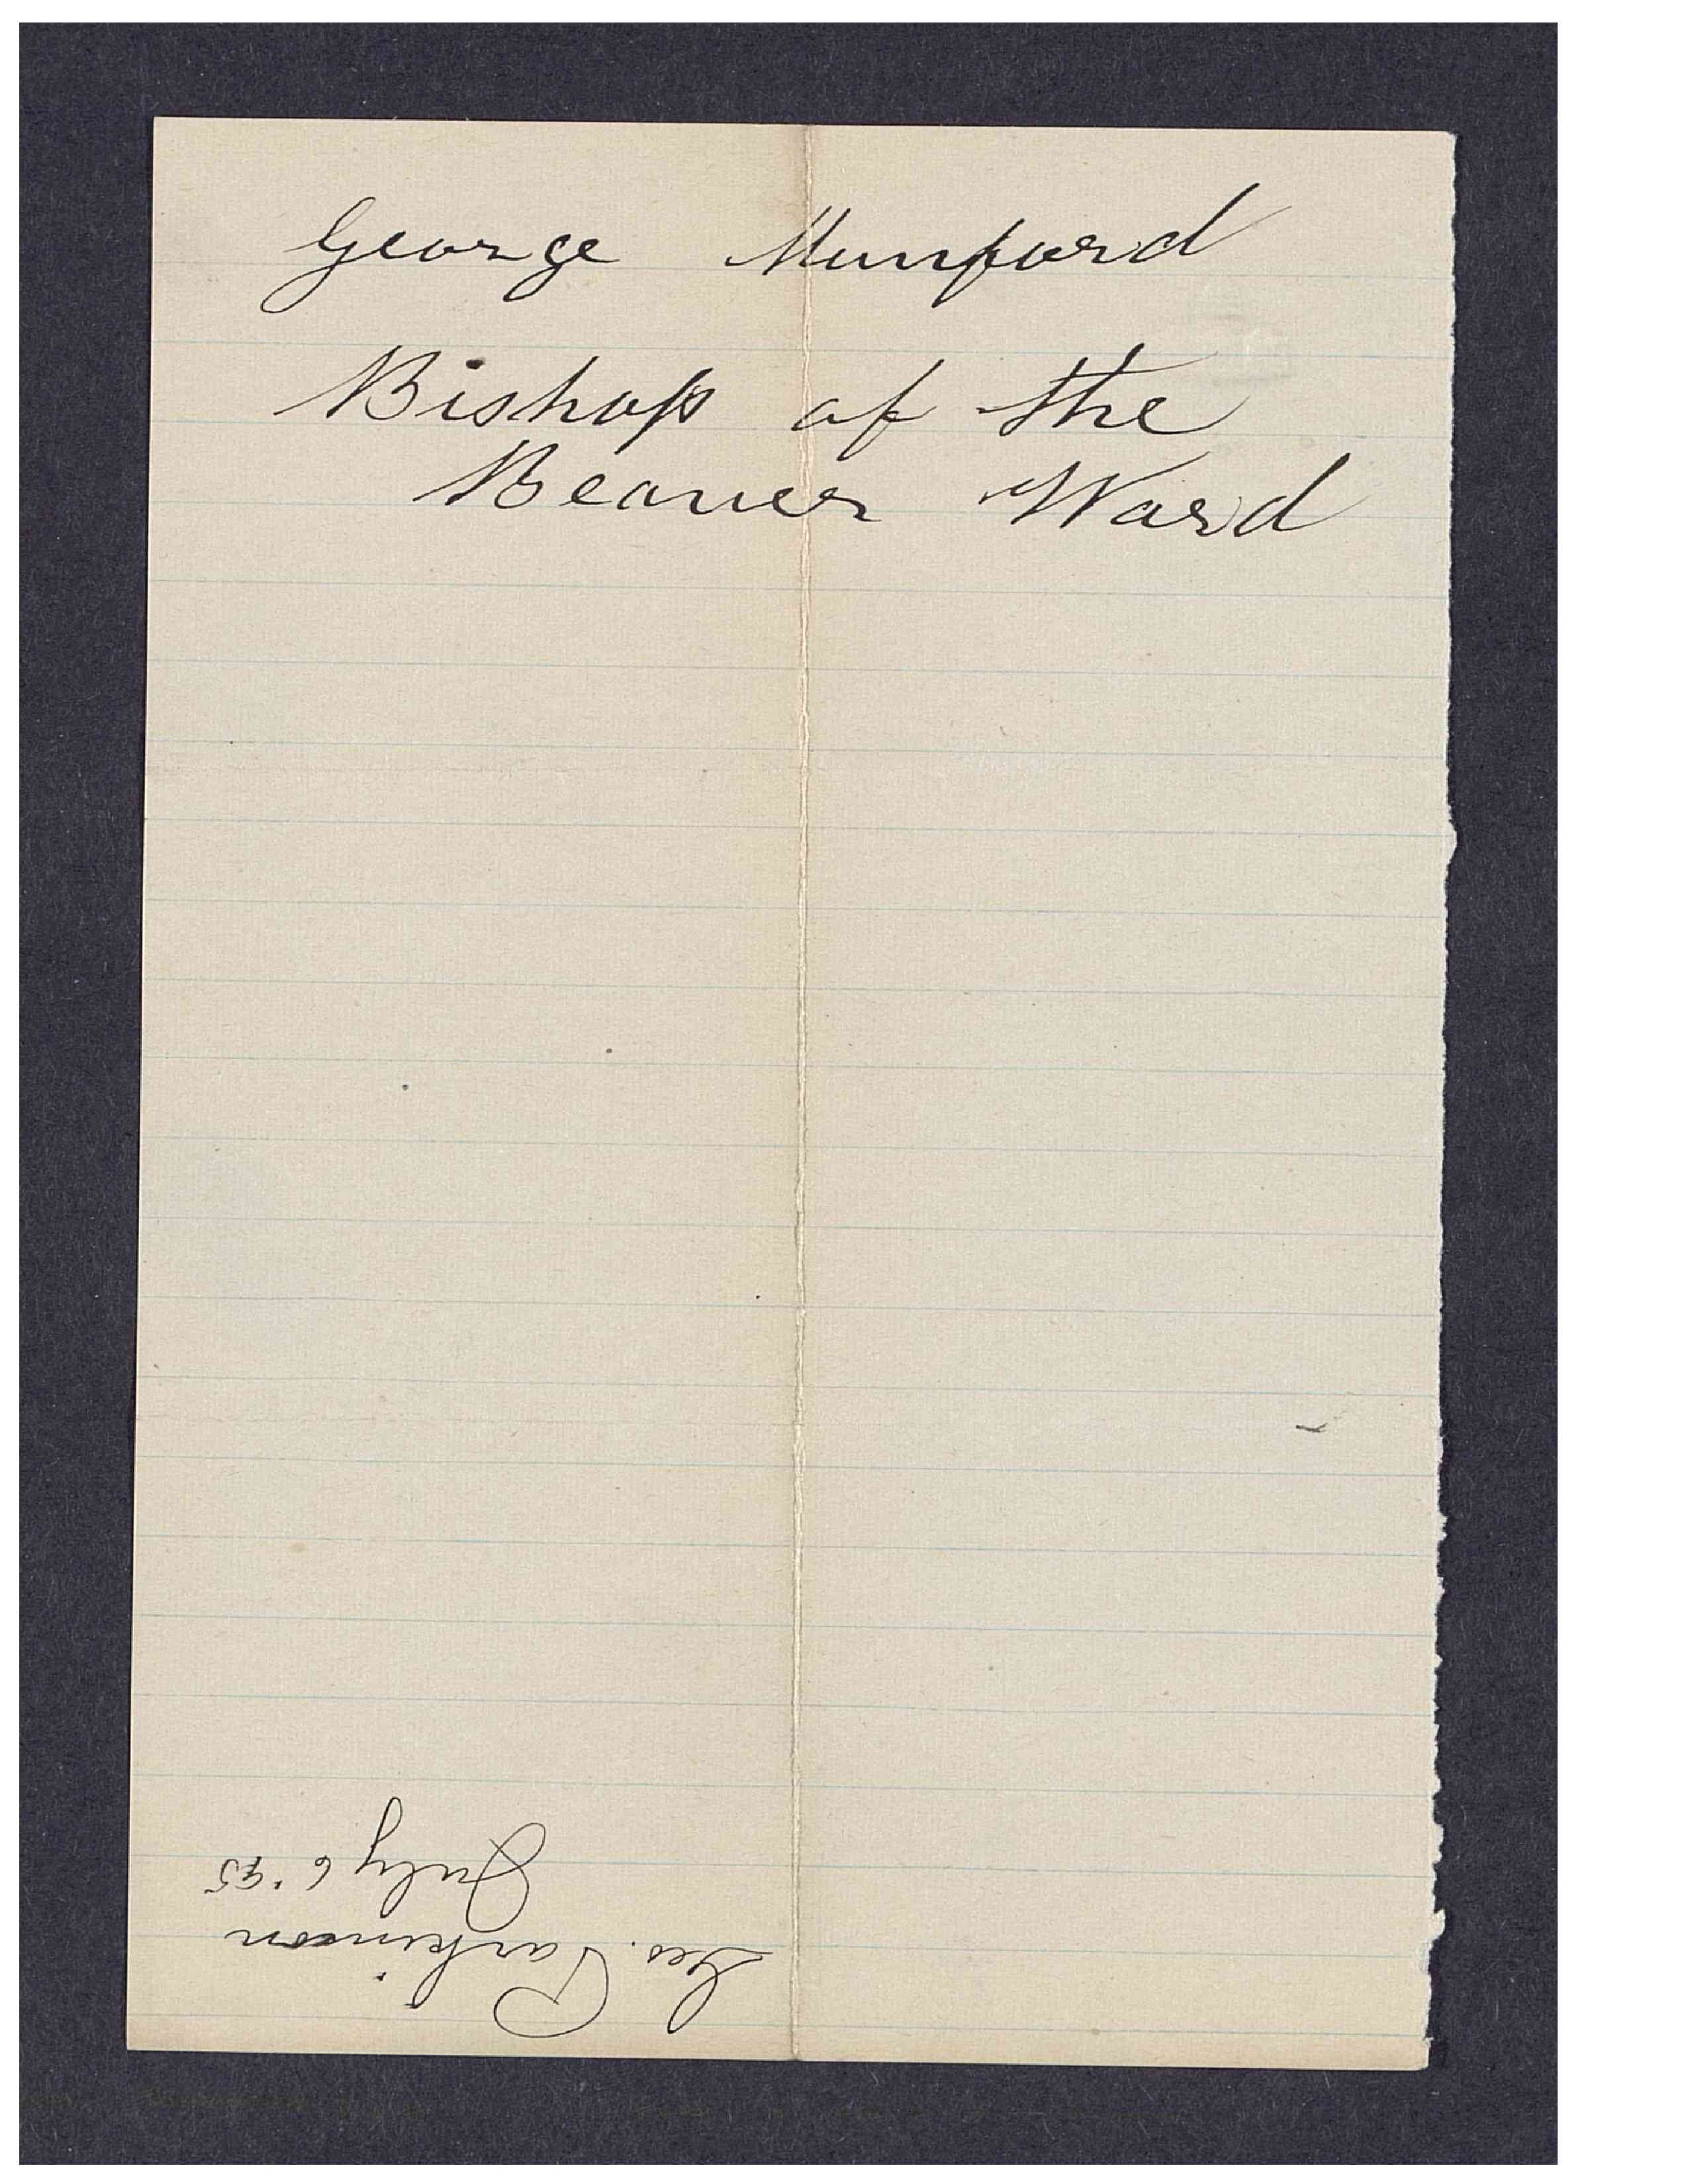 George Munford
Bishop of the
Beaver Ward
Geo. Parkinson
July 6 '95